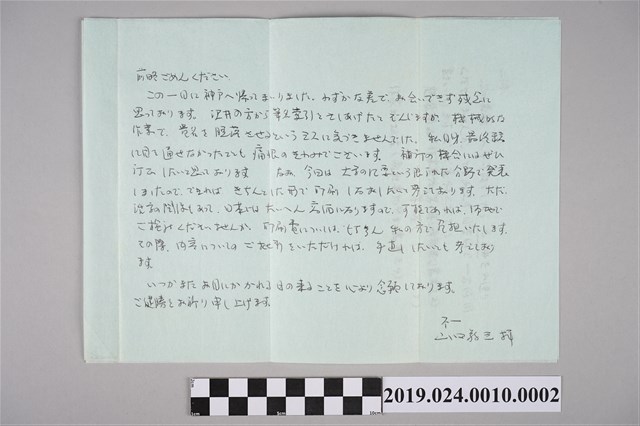 前略ごめんください
この一日に神戸へ帰ってまいりました。わずかな差で、お会いできず残念に
思っております。 の方から 索引 とてしあげたとぞんじますが、機械的な
作業で、貴名を脱落させるというミスに気づきませんでした。私自身、最終段
に目を通せなかったことも痛恨のきわみでございます。補訂の機会にはぜひ
訂正したいと思っております なお、今回は という限られた分野で発表
しましたので、できればきちんとした形で印刷しなおしたいと考えております。ただ、
関係もあって、日本ではたいへん高価になりますので、可能であれば、
ご検討くださいませんか。印刷費については、もちろん私の方で負担いたします。
その際、内容についてのご指示をいただければ、手直ししたいとも考えており
ます。
いつかまたお目にかかれる日の来ることを心より念願しております。
ご健勝をお祈り申し上げます。
不一
2019.024.0010.0002
1cm
5cm
10cm